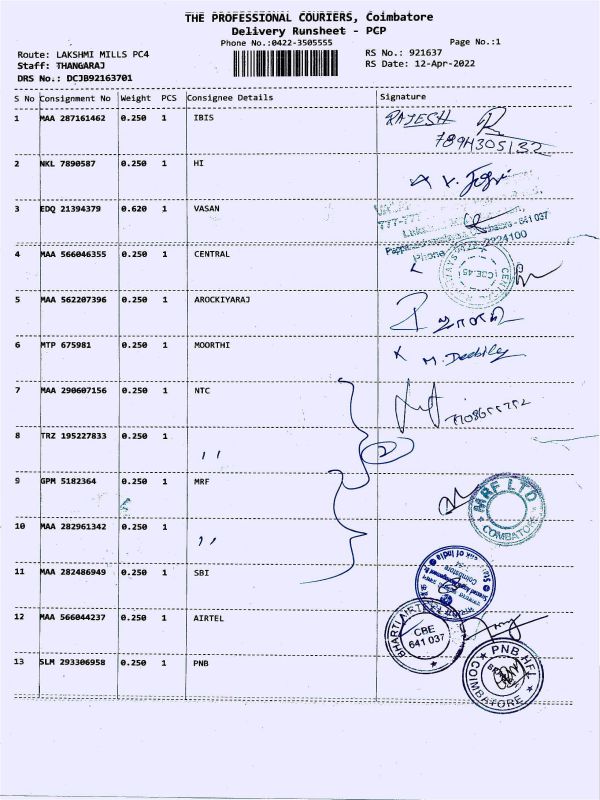 THE PROFESSIONAL COURIERS, Coimbatore
Delivery Runsheet - PCP
Phone No.:0422-3505555 Page No.:1
Route: LAKSHMI MILLS PC4 RS No.: 921637
Staff: THANGARAJ RS Date: 12-Apr-2022
DRS No.: DCJB92163701
S No Consignment No Weight PCS Consignee Details Signature
1 MAA 287161462 0.250 1 IBIS RAJESH
2 NKL 7890587 0.250 1 HI
3 EDQ 21394379 0.620 1 VASAN
641 037
Phone
4 MAA 566046355 0.250 1 CENTRAL
CBE-45
5 MAA 562207396 0.250 1 AROCKIYARAJ
6 MTP 675981 0.250 1 MOORTHI
7 MAA 290607156 0.250 1 NTC
8 TRZ 195227833 0.250 1 ,,
9 GPM 5182364 0.250 1 MRF
MRF LTD
COIMBATORE
10 MAA 282961342 0.250 1 ,,
11 MAA 282486949 0.250 1 SBI
Coimbatore
12 MAA 566044237 0.250 1 AIRTEL
BHARTI AIRTEL
CBE
641 037
13 SLM 293306958 0.250 1 PNB
PNB HFL
COIMBATORE